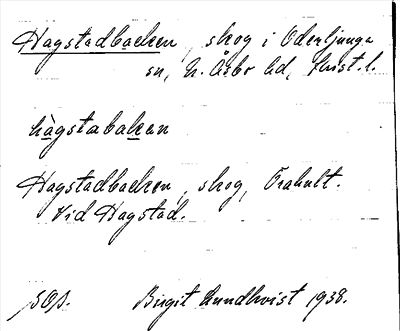 Hagstadbacken, skog i Oderljunga
sn, N. Åsbo hd, Krist. l.
hàgstabaken
Hagstadbacken, skog, Örahult.
Vid Hagstad.
Birgit Lundkvist 1938.